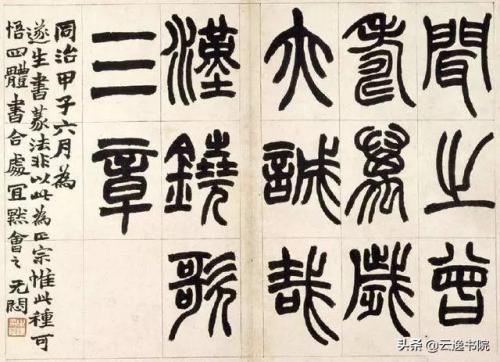 聞之曾
壽萬歲
亦誠哉
漢鐃歌
三章
同治甲子六月為
遂生書篆法非以此為正宗惟此種可
悟四體書合處宜默會之 无悶
头条 @云逸书院